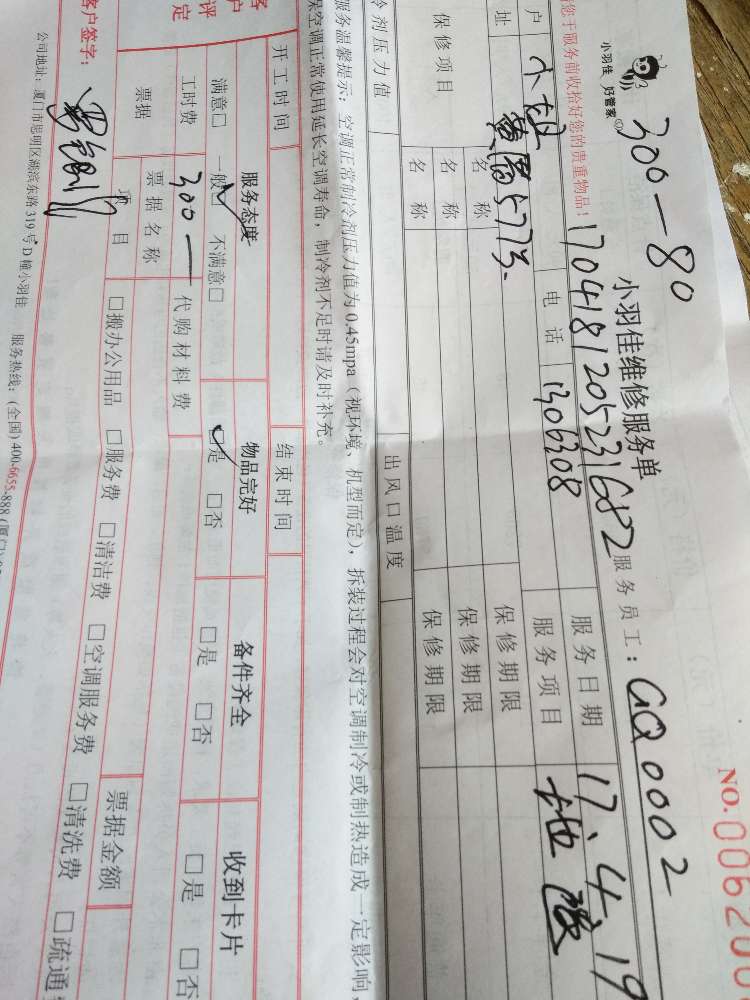 NO.006200
300—80
小羽佳 好管家
小羽佳维修服务单
1704181205231682
服务员工：GQ0002
您于服务前收拾好您的贵重物品！
户
小姐
电话
1306308
服务日期
17.4.19
址
黄厝577号
服务项目
地
保修项目
名称
保修期限
名称
保修期限
名称
保修期限
冷剂压力值
出风口温度
服务温馨提示：空调正常制冷剂压力值为0.45mpa（视环境、机型而定），拆装过程会对空调制冷或制热造成一定影响，
保空调正常使用延长空调寿命，制冷剂不足时请及时补充。
开工时间
结束时间
客户评定
服务态度
物品完好
备件齐全
收到卡片
满意□ 一般□ 不满意□
□是 □否
□是 □否
□是 □否
工时费
300—
代购材料费
票据
票据名称
票据金额
项目
□搬办公用品 □服务费 □清洁费 □空调服务费 □清洗费 □疏通
客户签字：
公司地址：厦门市思明区湖滨东路319号D幢小羽佳 服务热线：(全国)400-6655-888 (厦门)